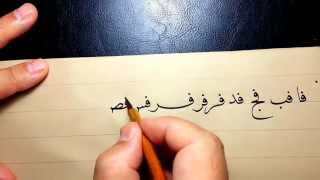 فا فب فج فد فر فر فر فس فص